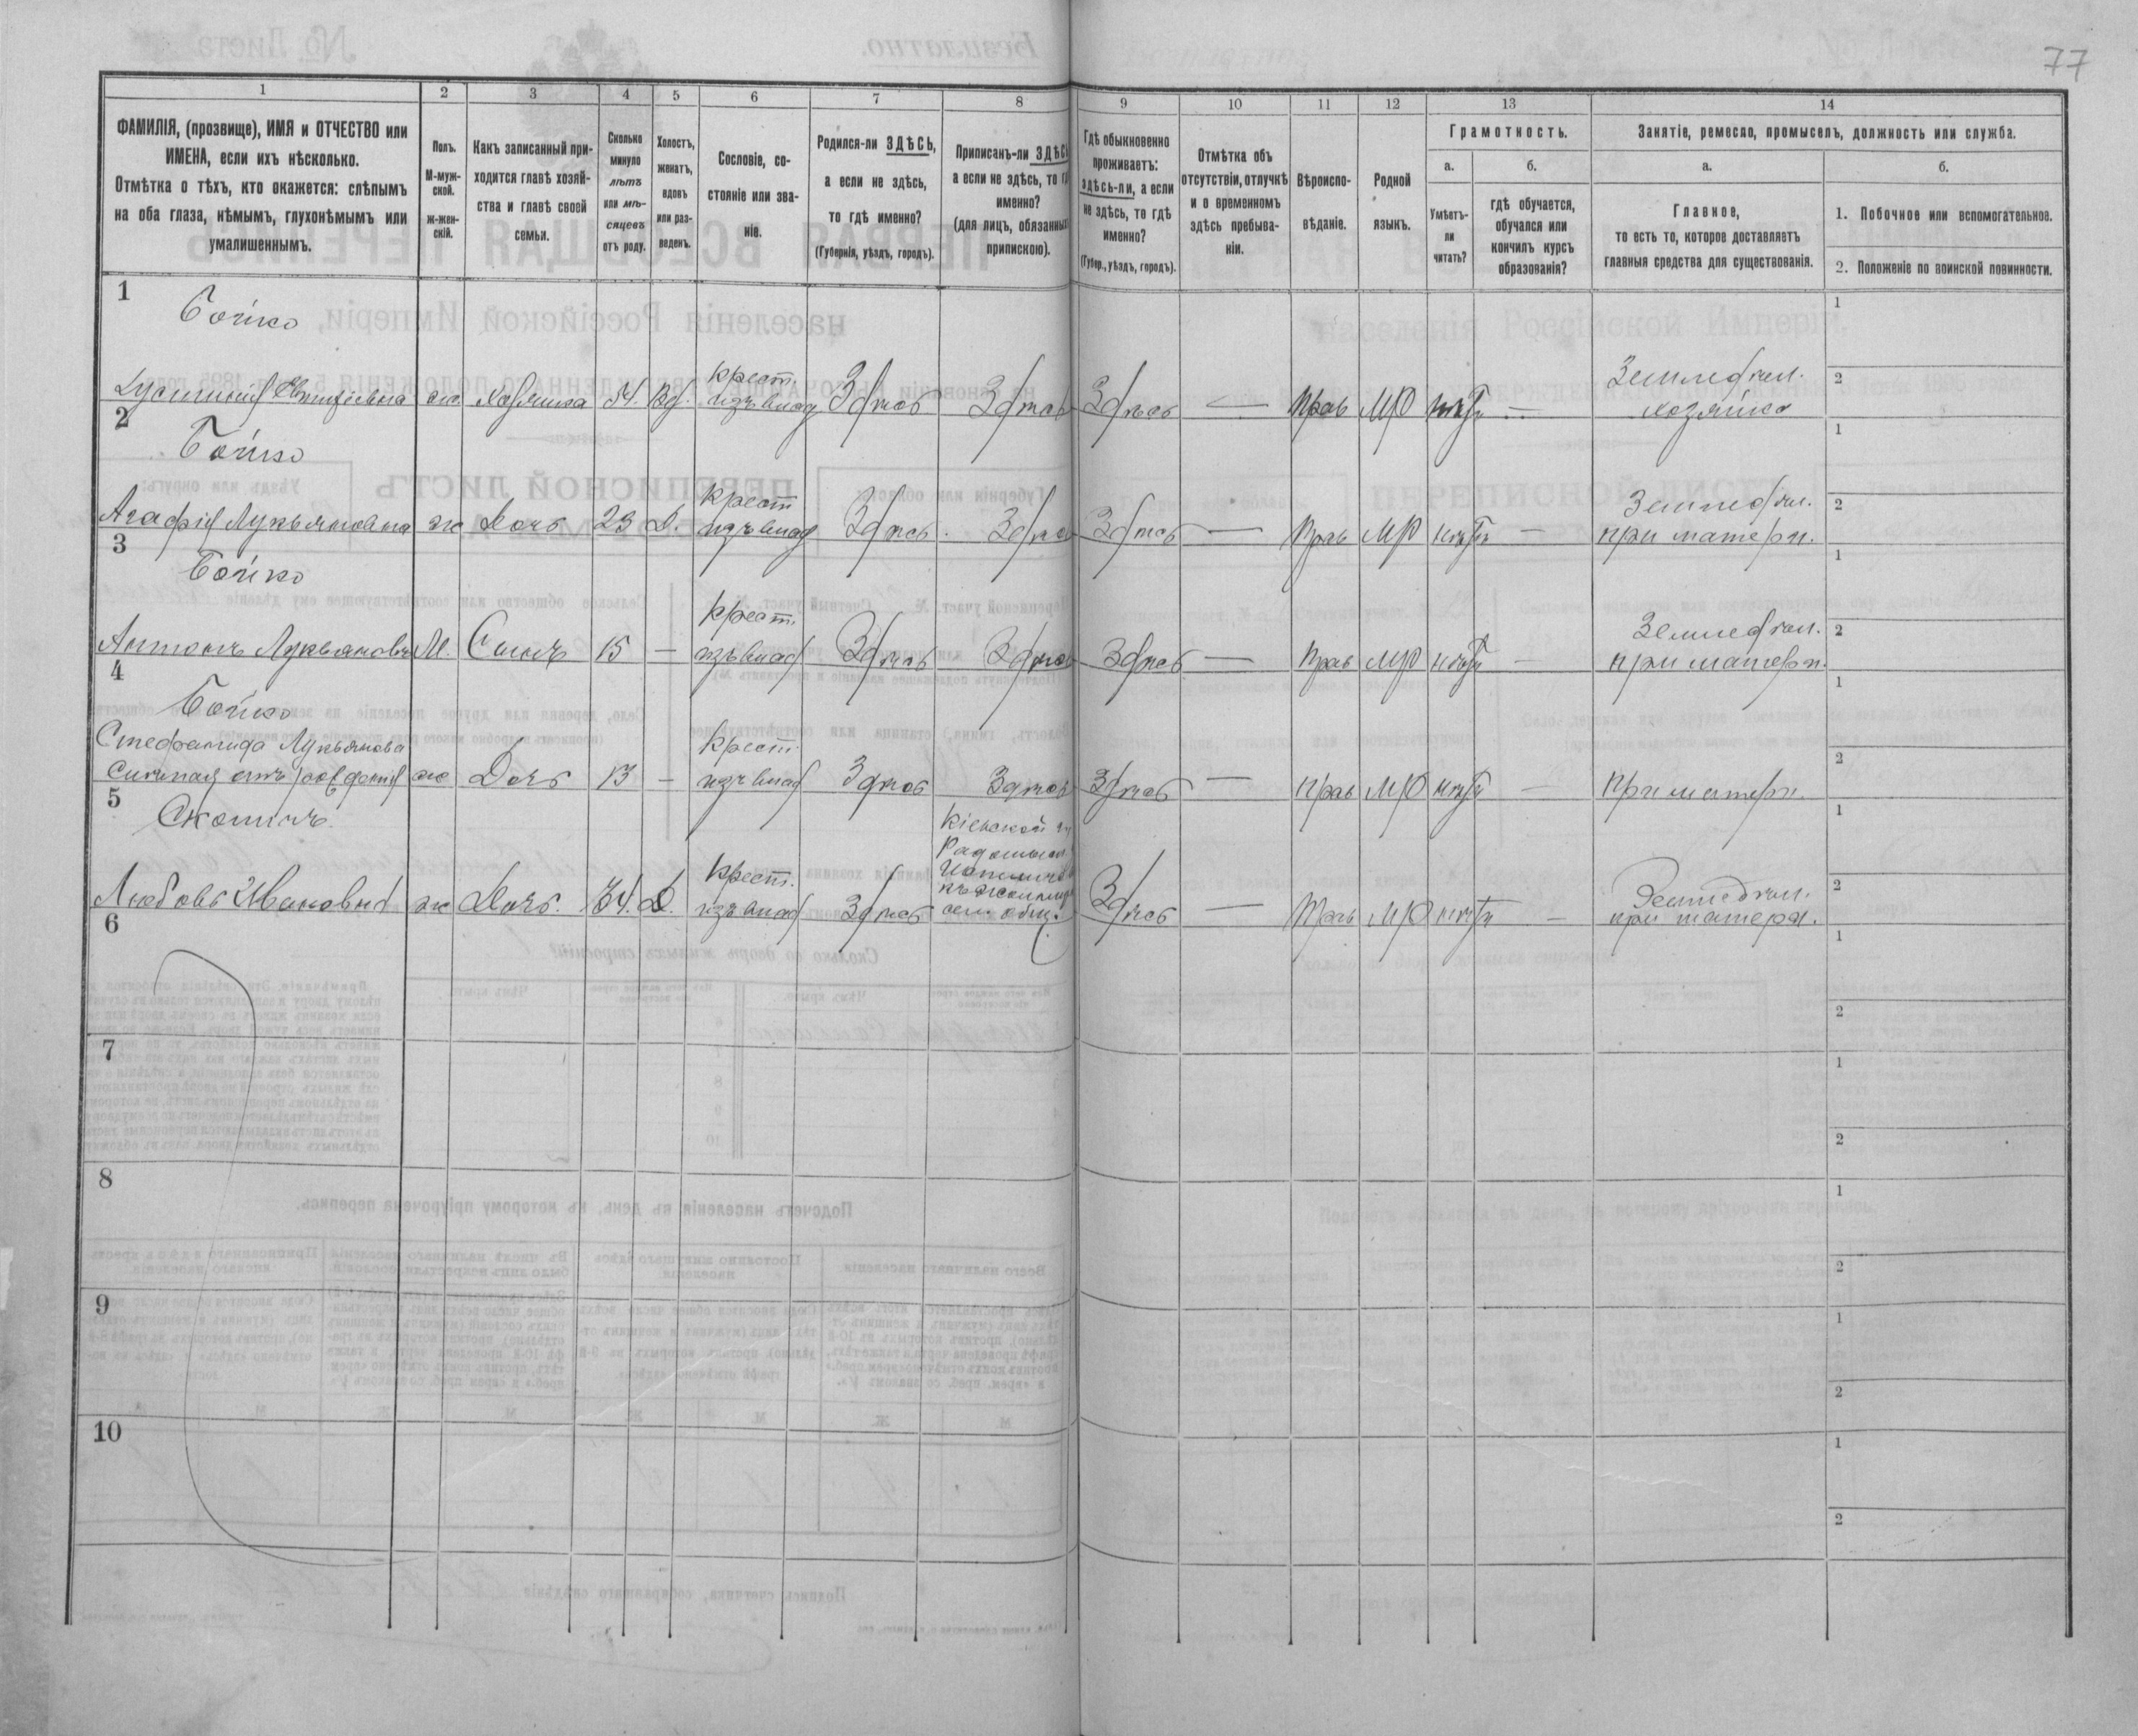 77
1
2
3
4
5
6
7
8
9
10
11
12
13
14
ФАМИЛІЯ, (прозвище), ИМЯ и ОТЧЕСТВО или
ИМЕНА, если ихъ нѣсколько.
Отмѣтка о тѣхъ, кто окажется: слѣпымъ
на оба глаза, нѣмымъ, глухонѣмымъ или
умалишеннымъ.
Полъ.
М-муж-
ской.
ж-жен-
скій.
Какъ записанный при-
ходится главѣ хозяй-
ства и главѣ своей
семьи.
Сколько
минуло
лѣтъ
или мѣ-
сяцевъ
отъ роду.
Холостъ,
женатъ,
вдовъ
или раз-
веденъ.
Сословіе, со-
стояніе или зва-
ніе.
Родился-ли ЗДѢСЬ,
а если не здѣсь,
то гдѣ именно?
(Губернія, уѣздъ, городъ).
Приписанъ-ли ЗДѢСЬ
а если не здѣсь, то
именно?
(для лицъ, обязанны
припискою).
Гдѣ обыкновенно
проживаетъ:
здѣсь-ли, а если
не здѣсь, то гдѣ
именно?
(Губер., уѣздъ, городъ).
Отмѣтка объ
отсутствіи, отлучкѣ
и о временномъ
здѣсь пребыва-
ніи.
Вѣроиспо-
вѣданіе.
Родной
языкъ.
Грамотность.
а.
Умѣетъ-
ли
читать?
б.
гдѣ обучается,
обучался или
кончилъ курсъ
образованія?
Занятіе, ремесло, промыселъ, должность или служба.
а.
Главное,
то есть то, которое доставляетъ
главныя средства для существованія.
б.
1. Побочное или вспомогательное.
2. Положеніе по воинской повинности.
1
Бойко
крест. Земледѣл.
ж хозяйка 54. Вд. изъ влад Здѣсь Здѣсь Здѣсь — Прав МР нѣтъ — хозяйка
2
Бойко
крест Земледѣл.
Агафія Лукьяновна ж Дочь 23 Д. изъ влад Здѣсь Здѣсь Здѣсь — Прав МР нѣтъ — при матери.
3
Бойко
крест. Земледѣл.
Антонъ Лукьяновъ М. Сынъ 15 — изъ влад Здѣсь Здѣсь Здѣсь — Прав МР нѣтъ — при матери.
4
Бойко
Стефанида Лукьянова крест.
ж Дочь 13 — изъ влад Здѣсь Здѣсь Здѣсь — Прав МР нѣтъ — При матери.
5
Кіевской
Радомысл
Крест. Земледѣл.
Любовь Ивановна ж Дочь. 34. Д. изъ влад Здѣсь Здѣсь — Прав МР нѣтъ — при матери.
6
7
8
9
10
1
2
1
2
1
2
1
2
1
2
1
2
1
2
1
2
1
2
1
2